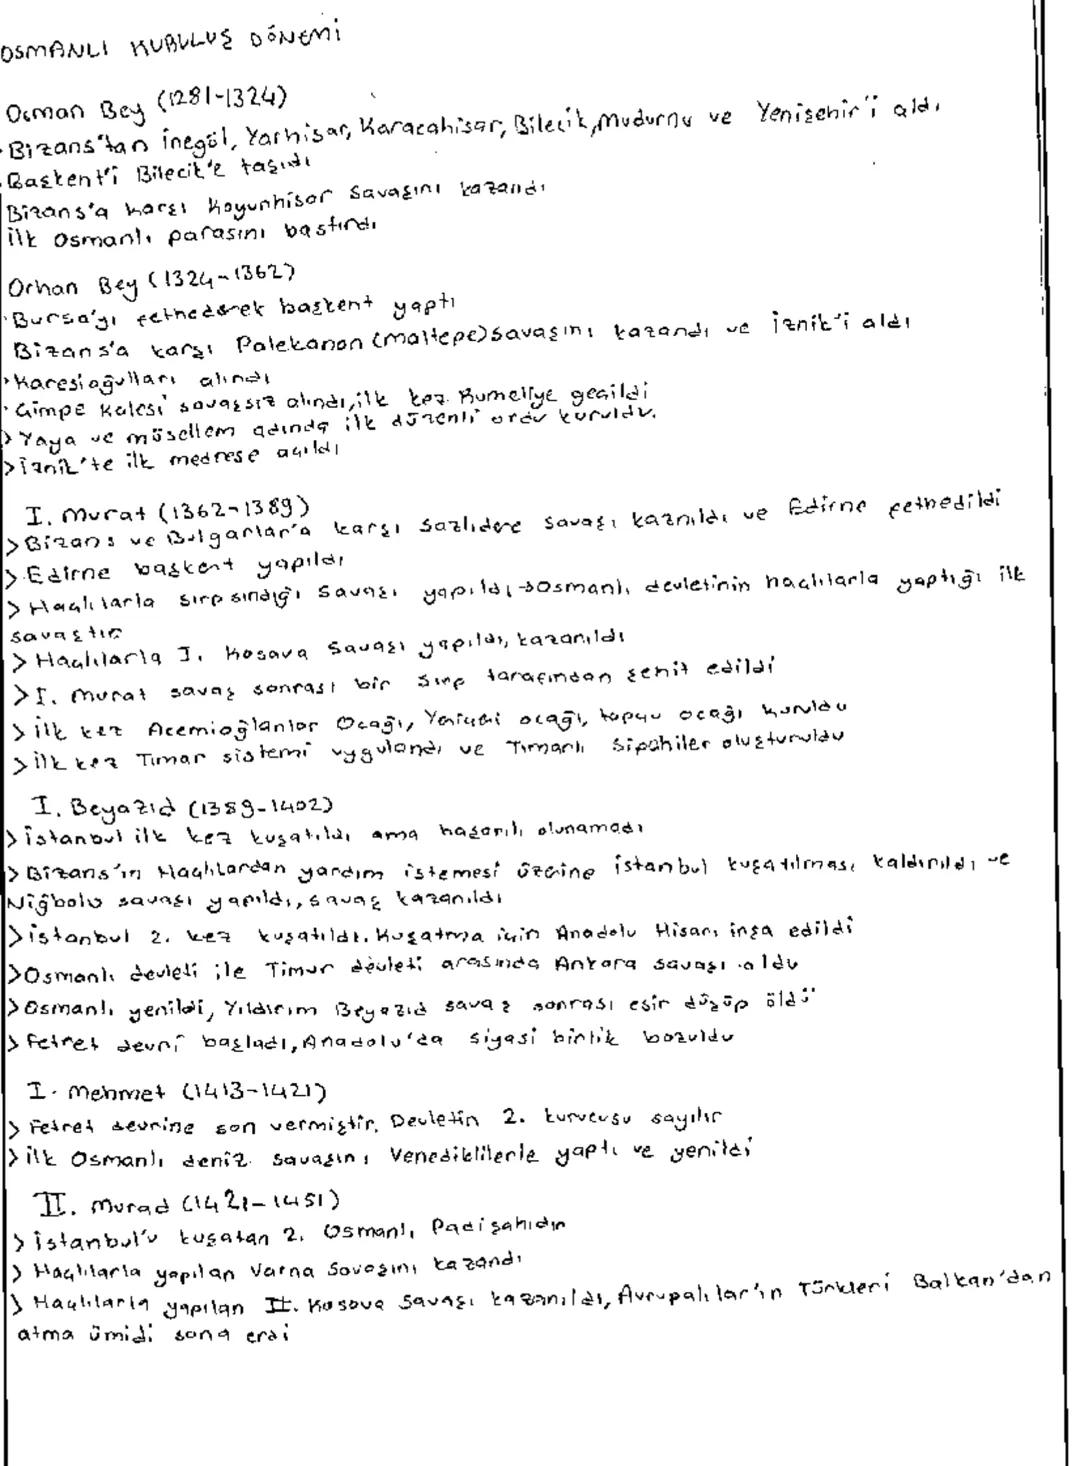 OSMANLI KURULUŞ DÖNEMİ
Osman Bey (1281-1324)
Bizans'tan İnegöl, Yarhisar, Karacahisar, Bilecik, Mudurnu ve Yenişehir'i aldı
Başkent'i Bilecik'e taşıdı
Bizans'a karşı Koyunhisar Savaşını kazandı
İlk Osmanlı parasını bastırdı
Orhan Bey (1324-1362)
Bursa'yı fethederek başkent yaptı
Bizans'a karşı Palekanon (maltepe) savaşını kazandı ve İznik'i aldı
Karesioğulları alındı
Çimpe Kalesi savaşsız alındı, ilk kez Rumeliye geçildi
> Yaya ve müsellem adında ilk düzenli ordu kuruldu.
> İznik'te ilk medrese açıldı
I. Murat (1362-1389)
> Bizans ve Bulgarlar'a karşı Sazlıdere savaşı kaznıldı ve Edirne fethedildi
> Edirne başkent yapıldı
> Haçlılarla sırpsındığı Savaşı yapıldı → Osmanlı devletinin haçlılarla yaptığı ilk
savaştır
> Haçlılarla I. Kosava Savaşı yapıldı, kazanıldı
> I. Murat savaş sonrası bir Sırp tarafından şehit edildi
> İlk kez Acemioğlanlar Ocağı, Yeniçeri ocağı, topçu ocağı kuruldu
> İlk kez Tımar sistemi uygulandı ve Tımarlı Sipahiler oluşturuldu
I. Beyazıd (1389-1402)
> İstanbul ilk kez kuşatıldı ama başarılı olunamadı
> Bizans'ın Haçlılardan yardım istemesi üzerine İstanbul kuşatılması kaldırıldı ve
Niğbolu savaşı yapıldı, savaş kazanıldı
> İstanbul 2. kez kuşatıldı. Kuşatma için Anadolu Hisarı inşa edildi
> Osmanlı devleti ile Timur devleti arasında Ankara savaşı oldu
> Osmanlı yenildi, Yıldırım Beyazıd savaş sonrası esir düşüp öldü
> Fetret devri başladı, Anadolu'da siyasi birlik bozuldu
I. Mehmet (1413-1421)
> Fetret devrine son vermiştir. Devletin 2. kurucusu sayılır
> İlk Osmanlı deniz savaşını Venediklilerle yaptı ve yenildi
II. Murad (1421-1451)
> İstanbul'u kuşatan 2. Osmanlı Padişahıdır
> Haçlılarla yapılan Varna Savaşını kazandı
> Haçlılarla yapılan II. Kosova Savaşı kazanıldı, Avrupalılar'ın Türkleri Balkan'dan
atma ümidi sona erdi